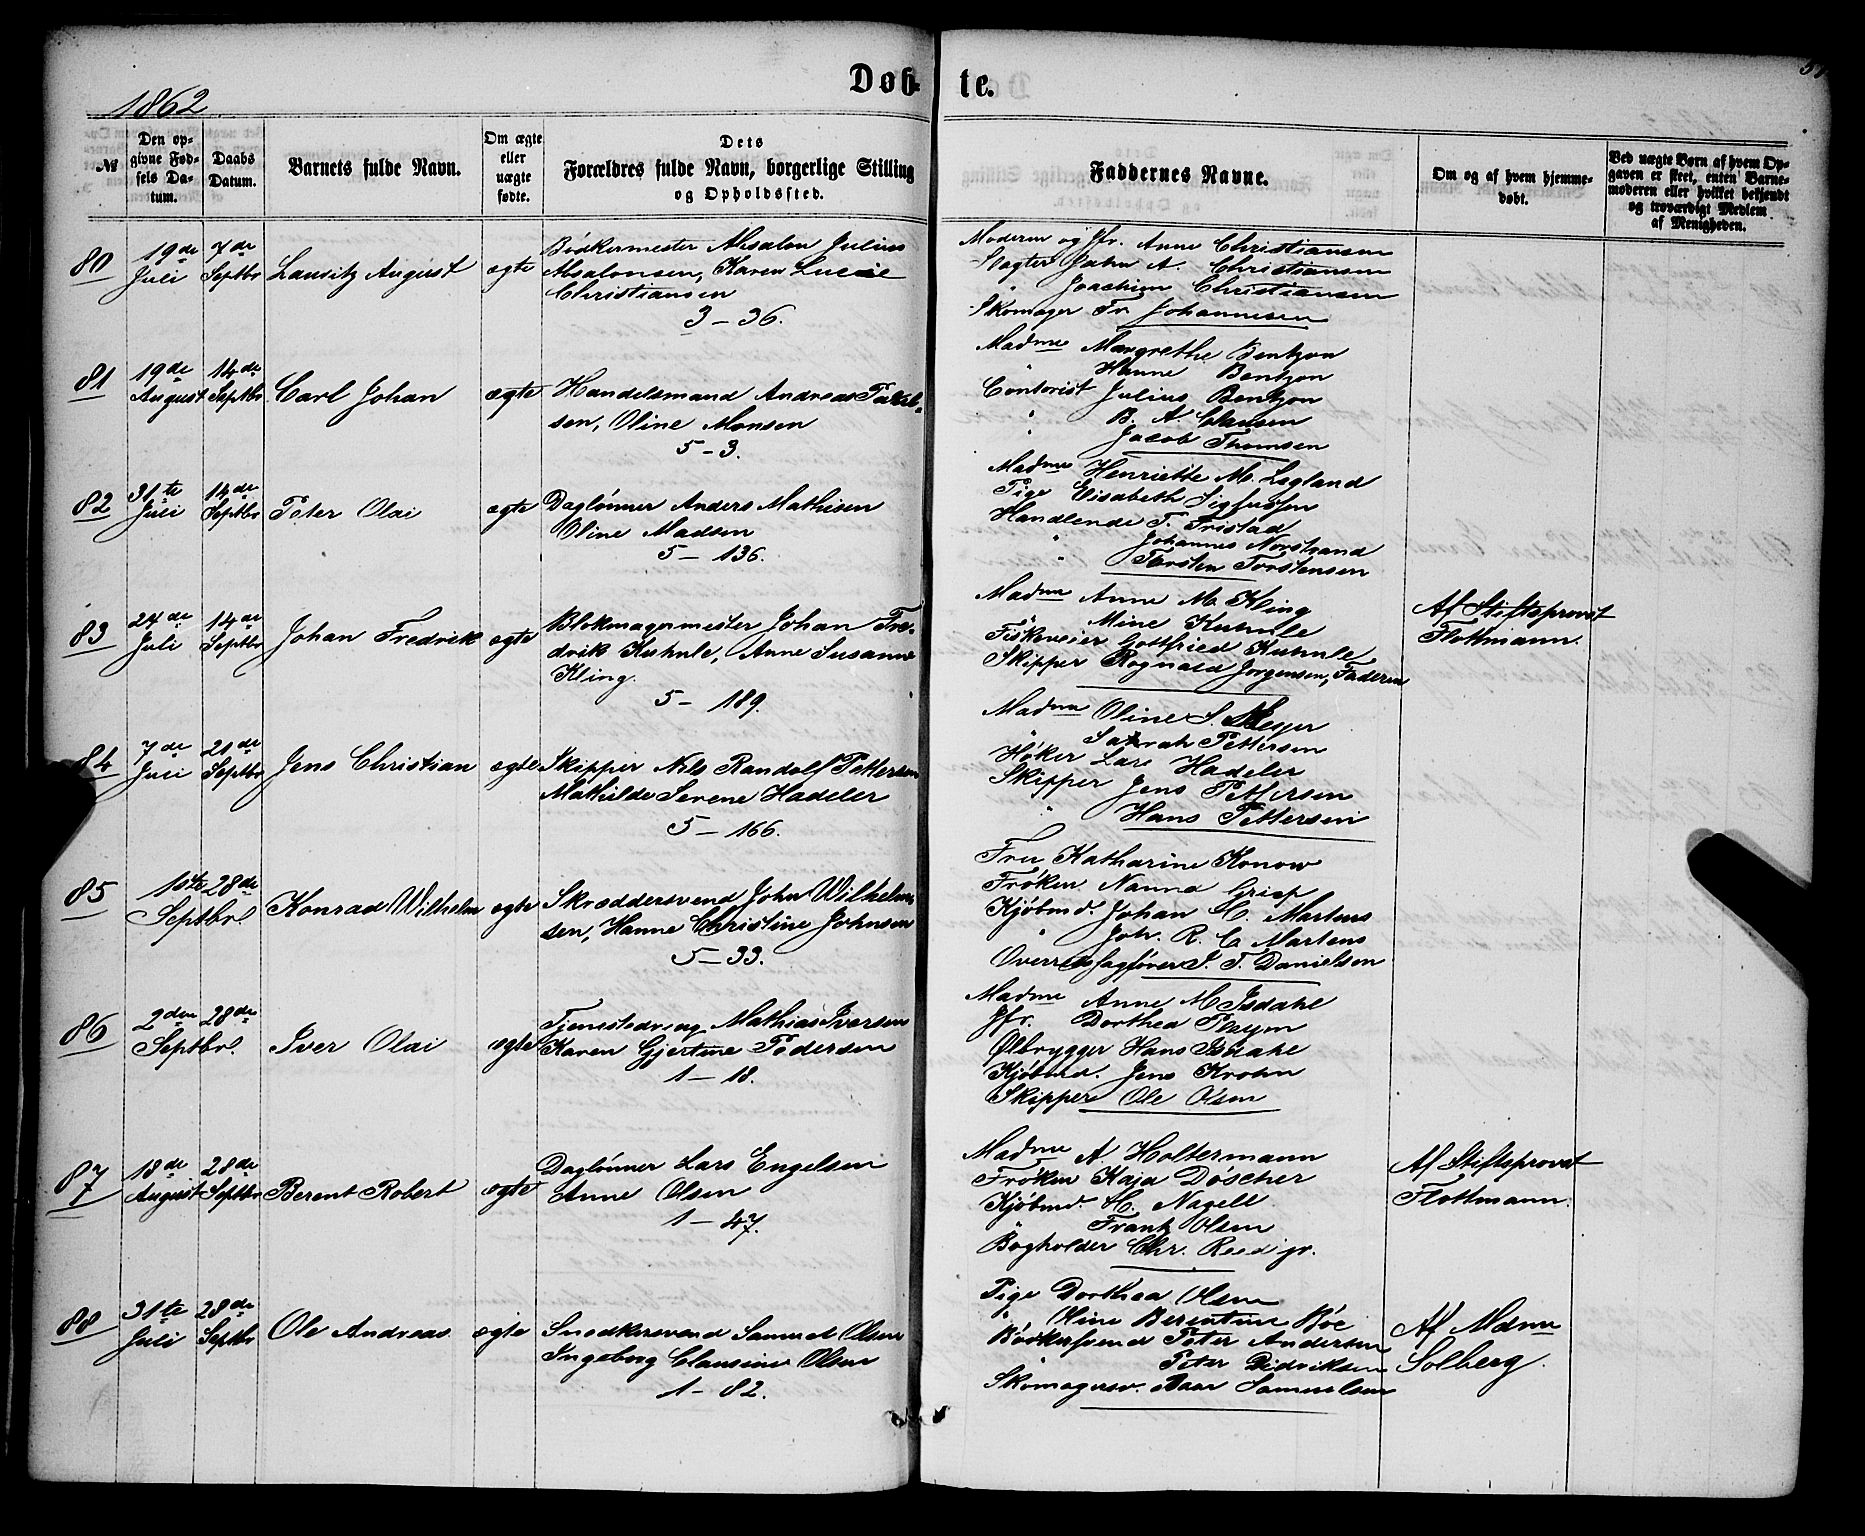 Døb-te.
1862
№
Den op-
givne Fød-
sels Da-
tum.
Daabs
Datum.
Barnets fulde Navn.
Om ægte
eller
uægte
fødte.
Dets
Forældres fulde Navn, borgerlige Stilling
og Opholdssted.
Faddernes Navne.
Om og af hvem hjemme-
døbt.
Ved uægte Børn af hvem Op-
gaven er skeet, enten Barne-
moderen eller hvilket bekjendt
og troværdigt Medlem
af Menigheden.
80
19de
Juli
7de
Septbr
Lauritz August
ægte
Bødkermester Absalon Julius
Absalonsen, Karen Lucie
Christiansen
3 – 36.
Moderen og Jfr. Anne Christiansen
Slagter John A. Christiansen
" Joachim Christiansen
Skomager Fr. Johannesen
81
19de
August
14de
Septbr
Carl Johan
ægte
Handelsmand Andreas
sen, Oline Monsen
5 – 3.
Madme Margrethe Bentzon
" Hanne Bentzon
Contorist Julius Bentzon
" B. A. Clausen
" Jacob Thomsen
82
31te
Juli
14de
Septbr
Peter Olai
ægte
Daglønner Anders Mathisen
Oline Madsen
5 – 136.
Madme Henriette M. Legland
Pige Elisabeth Sigfusen
Handlende T. Tristad
" Johannes Norstrand
Torsten Torstensen
83
24de
Juli
14de
Septbr
Johan Fredrik
ægte
Blokmagermester Johan Fre-
drik Kuhnle, Anne Susanne
Kling.
5 – 189.
Madme Anne M. Kling
" Mine Kuhnle
Fiskeveier Gottfried Kuhnle
Skipper Rognald Jørgensen, Faderen
Af Stiftsprovst
Flottmann.
84
7de
Juli
21de
Septbr
Jens Christian
ægte
Skipper Nils Randolf Pettersen
Mathilde Serene Hadeler
5 – 166.
Madme Oline S. Meyer
" Sahrah Pettersen
Høker Lars Hadeler
Skipper Jens Pettersen
" Hans Pettersen
85
1ste
Septbr.
28de
Konrad Wilhelm
ægte
Skræddersvend John Wilhelm-
sen, Hanne Christine Johnsen
5 – 33.
Fru Katharine Konow
Frøken Nanna Grieg
Kjøbmd. Johan C. Martens
" Joh. R. C. Martens
Overretssagfører J. T. Danielsen
86
2den
Septbr.
28de
Iver Olai
ægte
Tjenestedreng Mathias Iversen
Karen Gjertine Pedersen
1 – 18.
Madme Anne M. Isdahl
Jfr. Dorthea Pleym
Ølbrygger Hans Isdahl
Kjøbmd. Jens Krohn
Skipper Ole Olsen
87
18de
August
28de
Septbr
Berent Robert
ægte
Daglønner Lars Engelsen
Anne Olsen
1 – 47.
Madme A Holtermann
Frøken Kaja Døscher
Kjøbmd. H. Nagell
Frantz Olsen
Bogholder Chr. Reed jr.
Af Stiftsprovst
Flottmann.
88
31te
Juli
28de
Septbr
Ole Andreas
ægte
Snedkersvend Samuel Olsen
Ingeborg Clausine Olsen
1 – 82.
Pige Dorthea Olsen
" Oline Berentine Bøe
Bødkersvend Peter Andersen
" Peter Didriksen
Skomagersv. Baar Samuelsen
Af Mdme
Solberg.